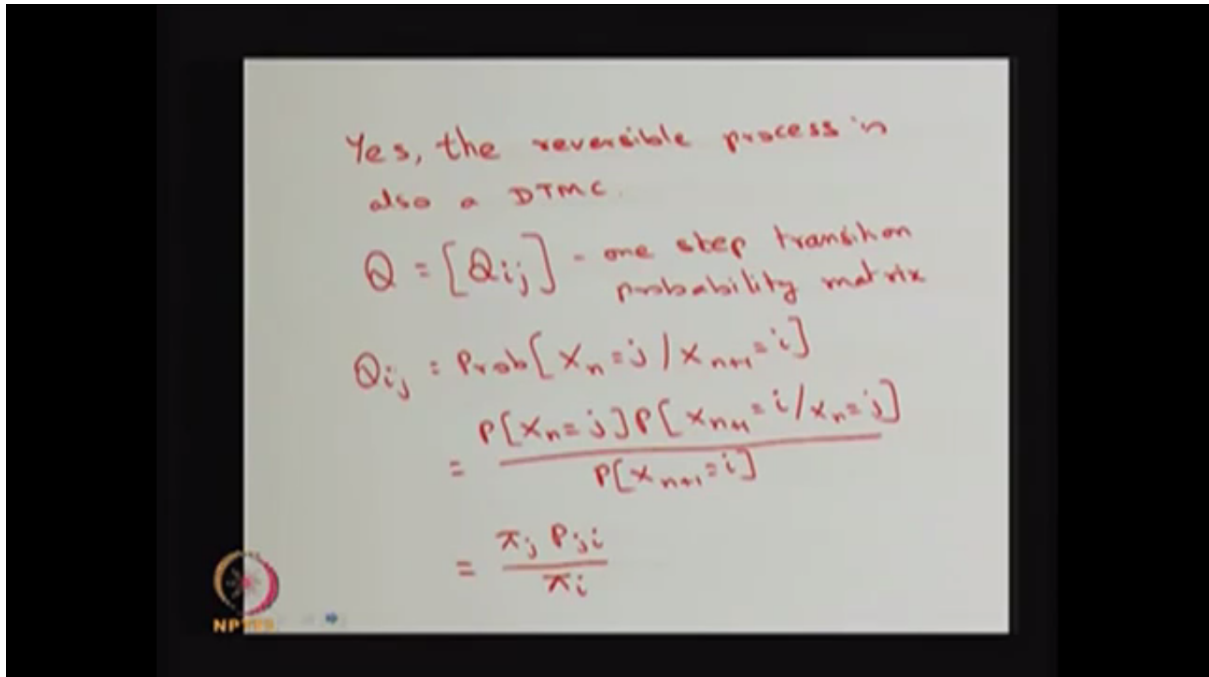 Yes, the reversible process is
also a DTMC.
Q = [Qij] - one step transition
probability matrix
Qij = Prob[Xn=j / Xn+1=i]
= P[Xn=j] P[Xn+1=i / Xn=j]
P[Xn+1=i]
= πj Pji
πi
NPTEL